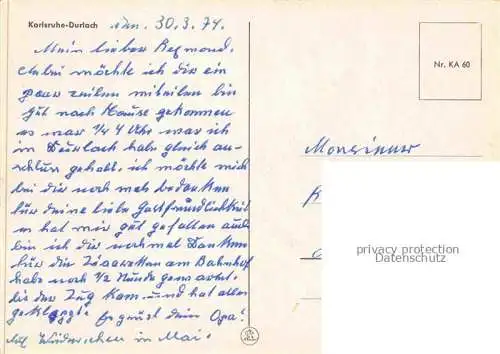 Karlsruhe-Durlach
den. 30.3.74.
Mein lieber Reymond.
Anbei möchte ich dir ein
paar zeilen miteilen bin
gut nach Hause gekommen
es war 1/4 4 Uhr war ich
in Durlach habe gleich an-
schluss gehabt, ich möchte mich
bei dir noch mals bedanken
für deine liebe Gastfreundlichkeit
es hat mir gut gefallen auch
bin ich dir nochmal Dankbar
für die am Bahnhof
habe noch 1/2 Stunde gewartet
bis der Zug kam. und hat alles
geklappt. Es grüst dein Opa!
Auf Wiedersehen im Mai.
Nr. KA 60
Monsieur
privacy protection
Datenschutz